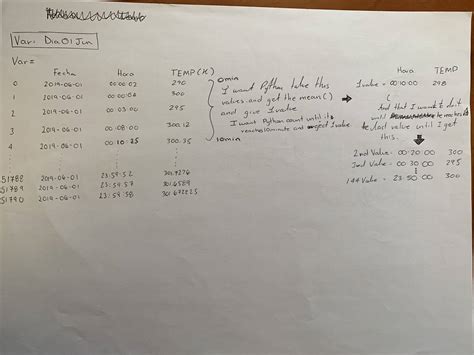 Var: Dia01Jun
Var=
Fecha Hora TEMP(K)
0 2019-06-01 00:00:02 290
1 2019-06-01 00:00:04 300
2 2019-06-01 00:03:00 295
3 2019-06-01 00:08:00 300.12
4 2019-06-01 00:10:25 300.35
51788 2019-06-01 23:59:52 301.9276
51789 2019-06-01 23:59:57 301.6589
51790 2019-06-01 23:59:58 301.692225
0min
I want Python take this
values and get the mean()
and give 1value
I want Python count until it
reaches 10minute and get 1value
10min
Hora TEMP
1value = 00:10:00 298
And that I want to do it
until he reaches
the last value until I get
this.
2nd Value = 00:20:00 300
3rd Value = 00:30:00 295
144Value = 23:50:00 300